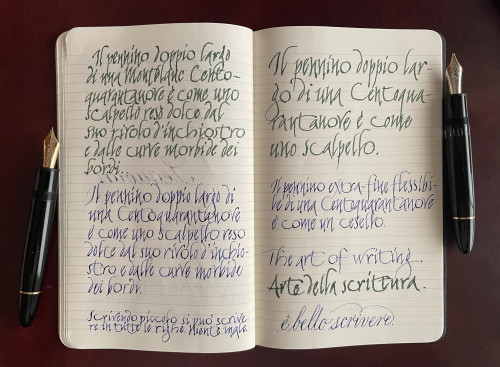 Il pennino doppio largo
di una Montblanc Cento-
quarantanove è come uno
scalpello reso dolce dal
suo rivolo d'inchiostro
e dalle curve morbide dei
bordi.
Il pennino doppio largo di
una Centoquarantanove
è come uno scalpello reso
dolce dal suo rivolo d'inchio-
stro e dalle curve morbide
dei bordi.
Scrivendo piccolo si può scrive-
re in tutte le righe niente male.
Il pennino doppio lar-
go di una Centoqua-
rantanove è come
uno scalpello.
Il pennino extra-fine flessibi-
le di una Centoquarantanove
è come un cesello.
The art of writing.
Arte della scrittura.
è bello scrivere.